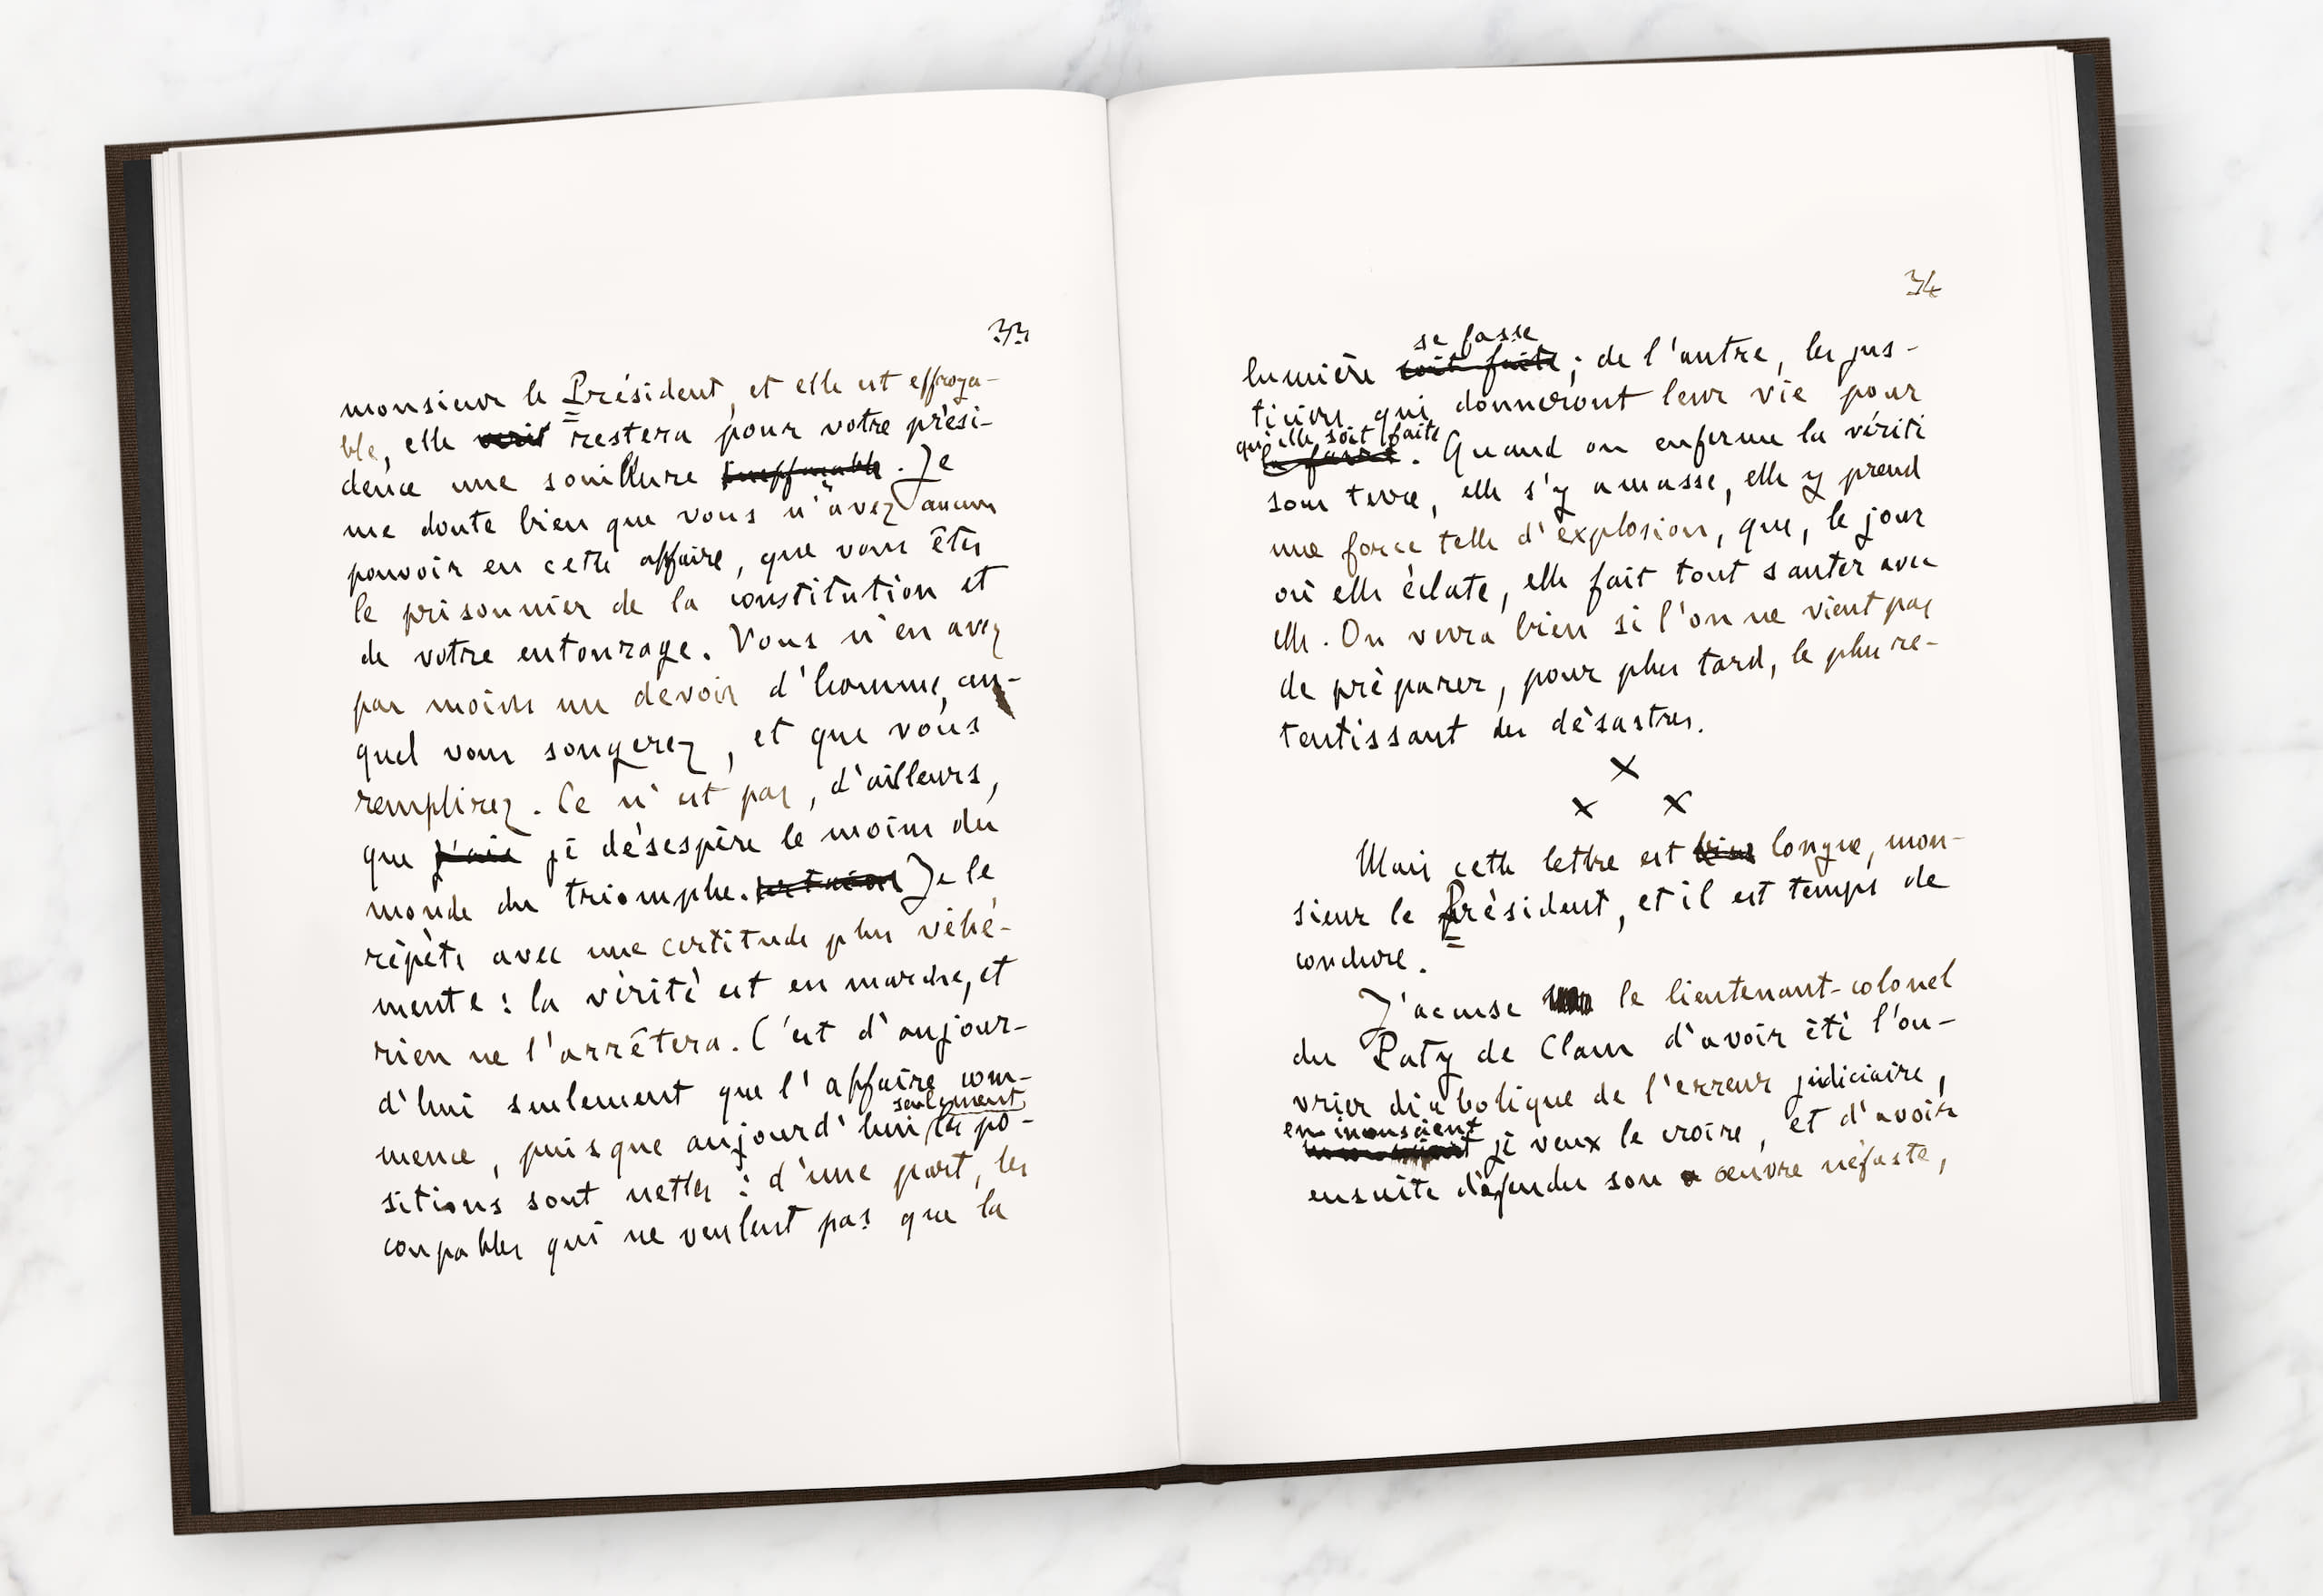 33
monsieur le Président, et elle est effroya-
ble, elle restera pour votre prési-
dence une souillure ineffaçable. Je
me doute bien que vous n'avez aucun
pouvoir en cette affaire, que vous êtes
le prisonnier de la constitution et
de votre entourage. Vous n'en avez
pas moins un devoir d'homme, au-
quel vous songerez, et que vous
remplirez. Ce n'est pas, d'ailleurs,
que j'aie je désespère le moins du
monde du triomphe. Je le
répète avec une certitude plus véhé-
mente : la vérité est en marche, et
rien ne l'arrêtera. C'est d'aujour-
d'hui seulement que l'affaire com-
seulement
mence, puisque aujourd'hui les po-
sitions sont nettes : d'une part, les
coupables qui ne veulent pas que la
34
se fasse
lumière soit faite ; de l'autre, les jus-
ticiers qui donneront leur vie pour
qu'elle soit faite
la faire. Quand on enferme la vérité
sous terre, elle s'y amasse, elle y prend
une force telle d'explosion, que, le jour
où elle éclate, elle fait tout sauter avec
elle. On verra bien si l'on ne vient pas
de préparer, pour plus tard, le plus re-
tentissant des désastres.
x
x x
Mais cette lettre est bien longue, mon-
sieur le Président, et il est temps de
conclure.
J'accuse le lieutenant-colonel
du Paty de Clam d'avoir été l'ou-
vrier diabolique de l'erreur judiciaire,
en inconscient
je veux le croire, et d'avoir
ensuite défendu son œuvre néfaste,